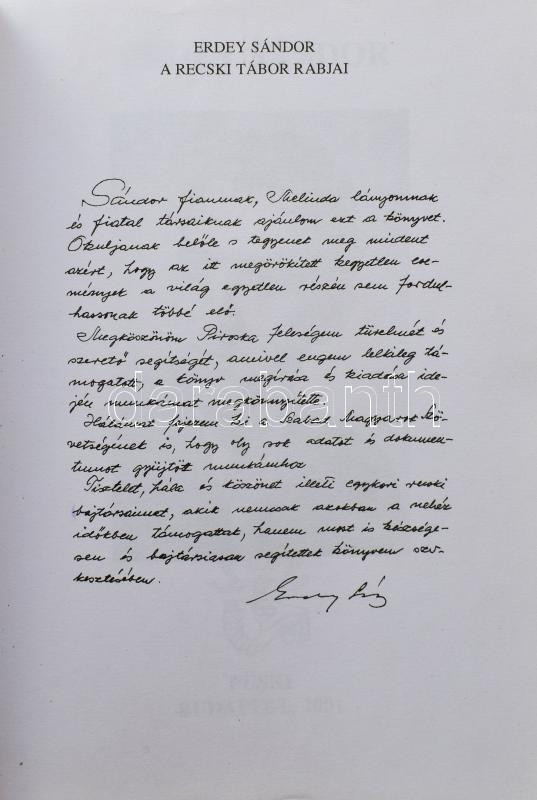 ERDEY SÁNDOR
A RECSKI TÁBOR RABJAI
Sándor fiamnak, Melinda lányomnak
és fiatal társaiknak ajánlom ezt a könyvet.
Okuljanak belőle s tegyenek meg mindent
azért, hogy az itt megörökített kegyetlen ese-
mények a világ egyetlen részén sem fordul-
hassanak többé elő.
Megköszönöm Piroska feleségem türelmét és
szerető segítségét, amivel engem lelkileg tá-
mogatott, a könyv megírása és kiadása ide-
jén munkámat megkönnyítette.
Hálámat fejezem ki a Szabad Magyarok Kö-
vetségének is, hogy oly sok adatot és dokumen-
tumot gyűjtött munkámhoz.
Tisztelet, hála és köszönet illeti egykori recski
bajtársaimat, akik nemcsak azokban a nehéz
időkben támogattak, hanem most is készsége-
sen és bajtársiasan segítettek könyvem szer-
kesztésében.
Erdey Sándor
darabanth